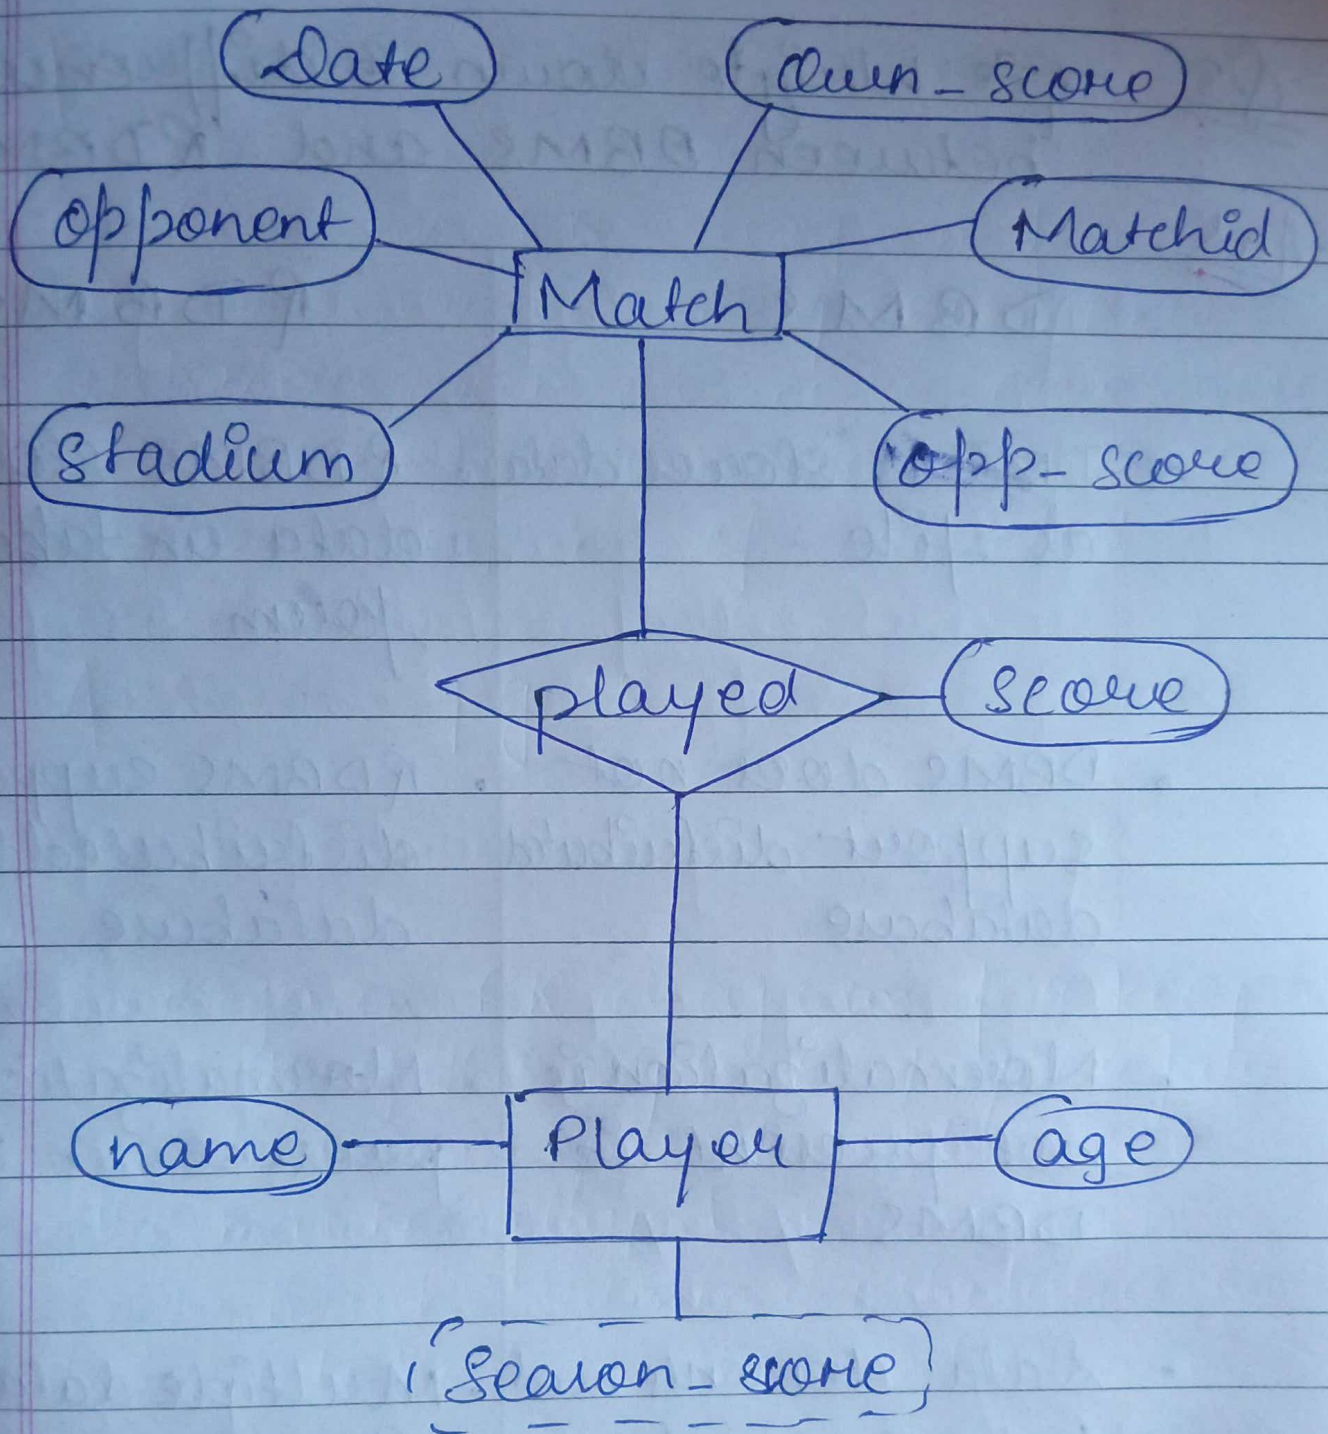 Date
Own_score
opponent
Matchid
Match
Stadium
opp_score
played
score
name
Player
age
Season_score